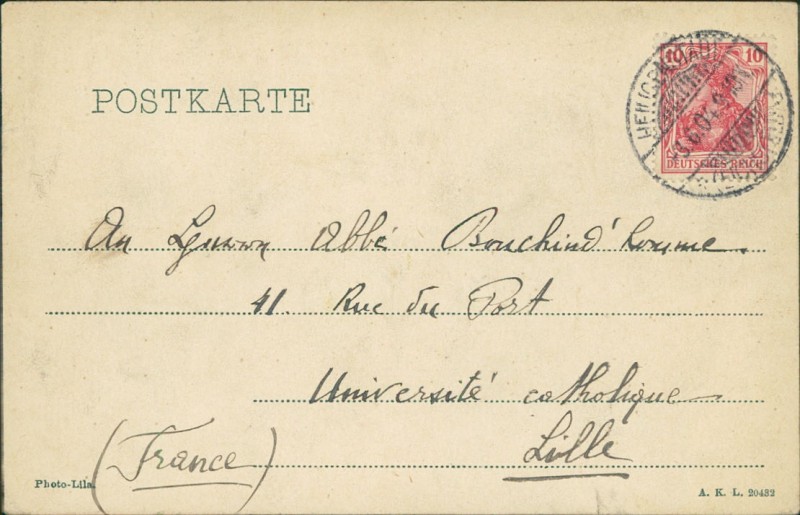 POSTKARTE
10 10
DEUTSCHES REICH
HEILIGENSTADT
3.6.04.
An Herrn Abbé Bouchind'homme.
41. Rue du Port
Université catholique
Lille
(France)
Photo-Lila.
A. K. L. 20432